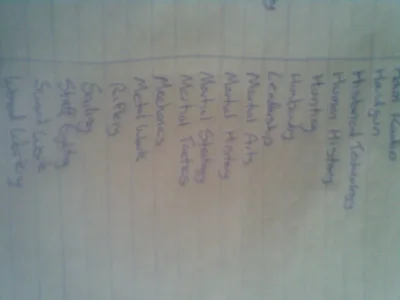 Ham Radio
Handgun
Historical Technology
Human History
Hunting
Husbandry
Leadership
Martial Arts
Martial History
Martial Strategy
Martial Tactics
Mechanics
Metal Work
Riflery
Sailing
Staff Fighting
Sword Work
Wood Working